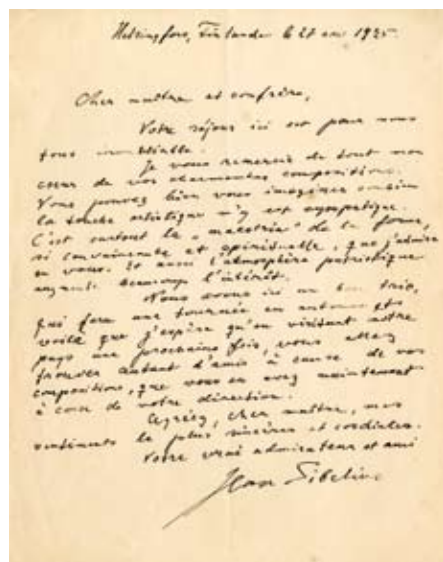 Helsingfors, Finlande le 27 1925
Cher maître et confrère,
Votre séjour ici est pour nous
tous inoubliable.
Je vous remercie de tout mon
cœur de vos charmantes compositions.
Vous pouvez bien vous imaginer combien
la touche artistique m'y est sympatique.
C'est surtout le „maestria" de la forme,
si convaincante et spirituelle, que j'admire
en vous. Et aussi l'atmosphère patriotique
augmente beaucoup l'intérêt.
Nous avons ici un bon trio,
qui fera une tournée en automne et
voilà que j'espère qu'en visitant notre
pays une prochaine fois, vous allez
trouver autant d'amis à cause de vos
compositions, que vous en avez maintenant
à cause de votre direction.
Agréez, cher maître, mes
sentiments le plus sincères et cordiales.
Votre vrai admirateur et ami
Jean Sibelius